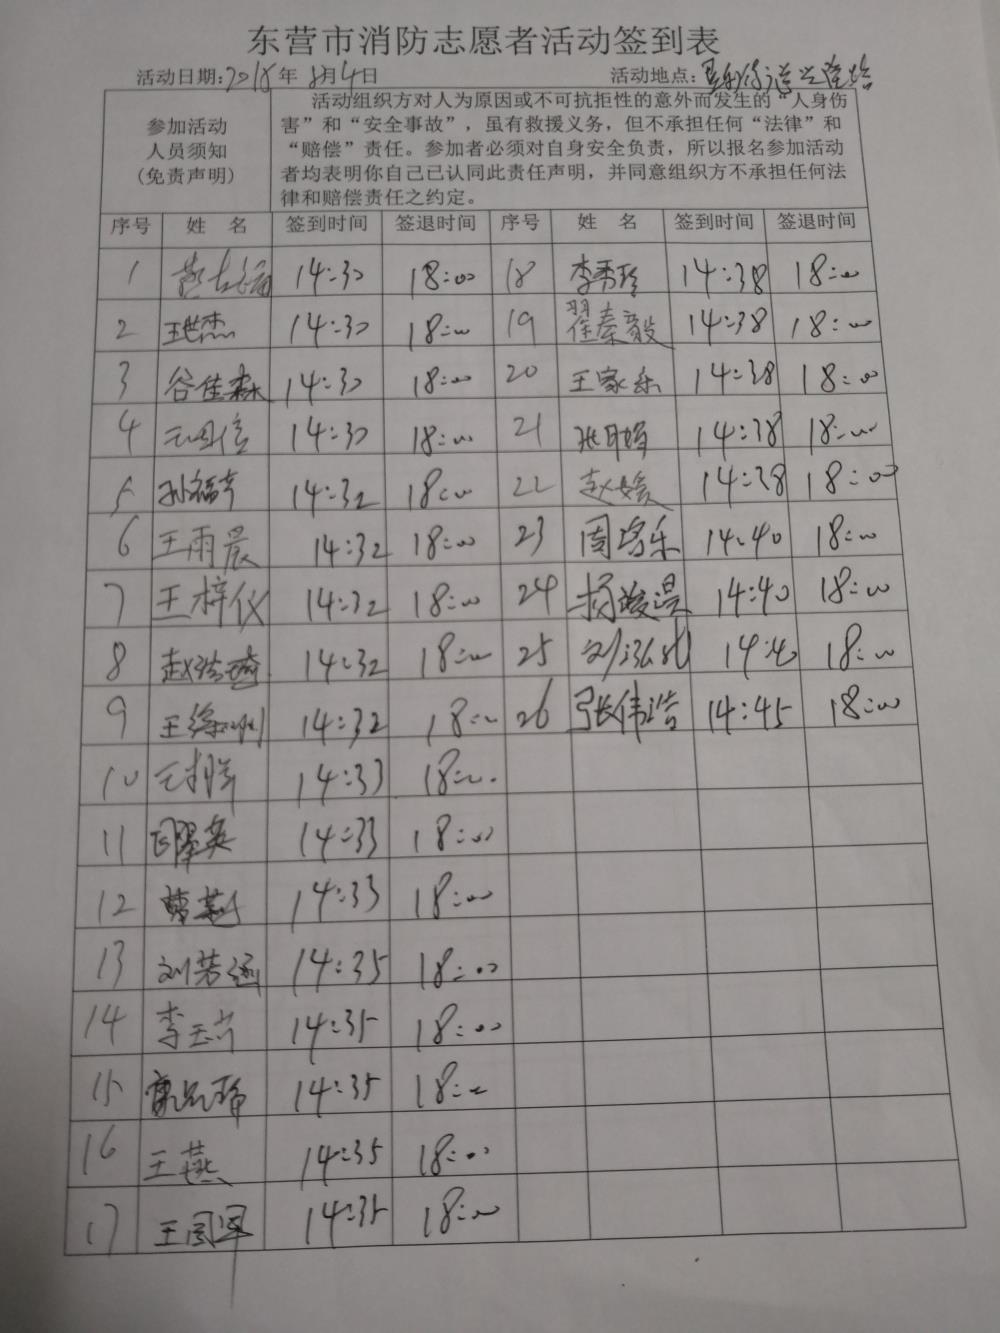 东营市消防志愿者活动签到表
活动日期:2018年8月4日 活动地点:
参加活动
人员须知
(免责声明)
活动组织方对人为原因或不可抗拒性的意外而发生的“人身伤
害”和“安全事故”，虽有救援义务，但不承担任何“法律”和
“赔偿”责任。参加者必须对自身安全负责，所以报名参加活动
者均表明你自己已认同此责任声明，并同意组织方不承担任何法
律和赔偿责任之约定。
序号 姓 名 签到时间 签退时间 序号 姓 名 签到时间 签退时间
1 14:30 18:00 18 李秀玲 14:38 18:00
2 王世杰 14:30 18:00 19 翟秦毅 14:38 18:00
3 谷佳森 14:30 18:00 20 王家乐 14:38 18:00
4 14:30 18:00 21 张月娟 14:38 18:00
5 孙福亭 14:32 18:00 22 赵媛 14:38 18:00
6 王雨晨 14:32 18:00 23 周洺乐 14:40 18:00
7 王梓仪 14:32 18:00 24 杨竣淏 14:40 18:00
8 14:32 18:00 25 14:40 18:00
9 14:32 18:00 26 张伟浩 14:45 18:00
10 14:33 18:00
11 14:33 18:00
12 14:33 18:00
13 刘芳涵 14:35 18:00
14 14:35 18:00
15 14:35 18:00
16 王燕 14:35 18:00
17 王国军 14:35 18:00